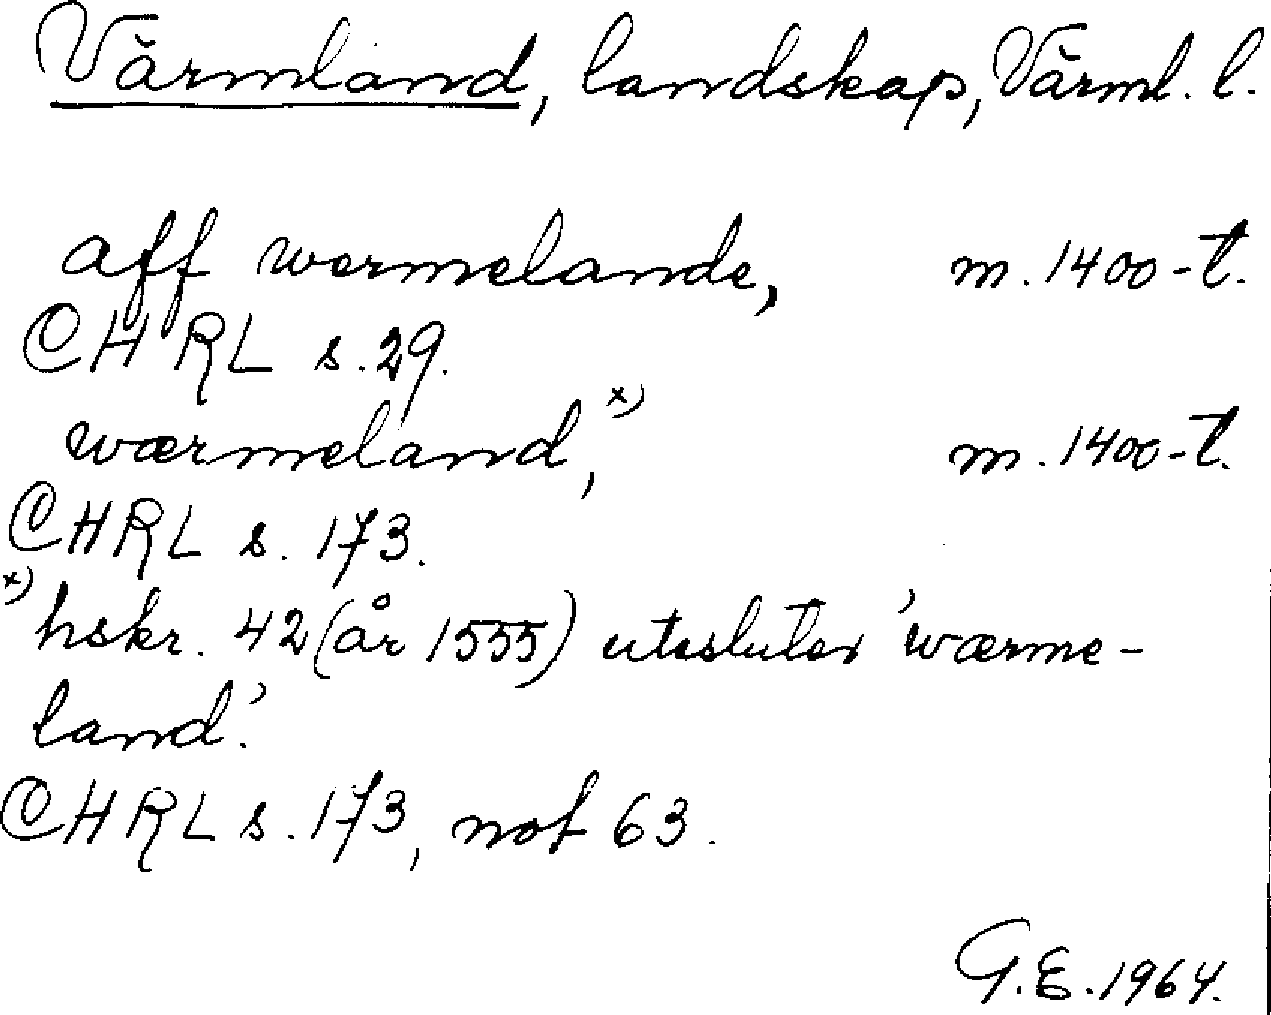 Värmland, landskap, Värml. l.
aff wermelande, m. 1400-t.
CHRL s. 29.
wærmeland, x) m. 1400-t.
CHRL s. 173.
x) hskr. 42 (år 1555) utesluter 'wærme-
land'.
CHRL s. 173, not 63.
G.E. 1964.